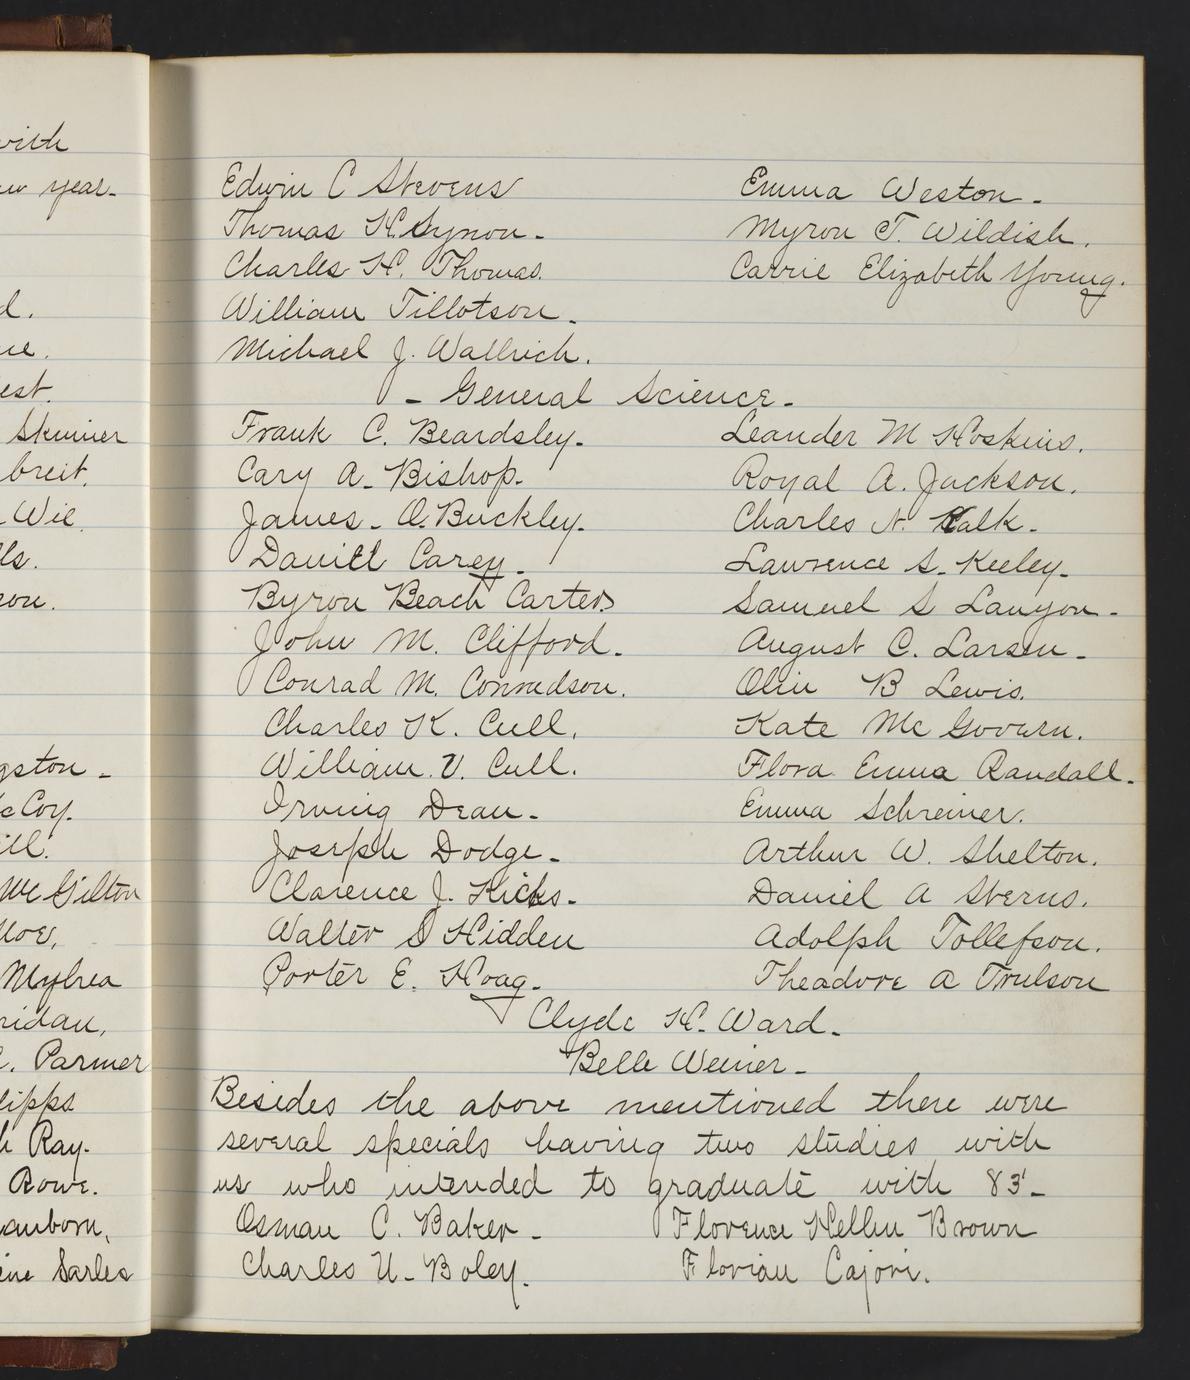 with
year-
d.
est.
Skinner
breit.
Wil.
lls.
son.
gston -
McCoy.
ill.
McGilton
Moe,
Mylrea
ridan,
Parmer
lipps
h Ray.
Rowe.
anborn,
Sarles
Edwin C Stevens
Thomas H. Synon -
Charles H. Thomas.
William Tillotson -
Michael J. Wallrich.
Emma Weston -
Myron T. Wildish.
Carrie Elizabeth Young.
- General Science -
Frank C. Beardsley -
Cary A. Bishop -
James - A. Buckley -
Daniel Carey -
Byron Beach Carter
John M. Clifford -
Conrad M. Conradson.
Charles K. Cull.
William V. Cull.
Irving Dean -
Joseph Dodge -
Clarence J. Hicks -
Walter S Hidden
Porter E. Hoag -
Leander M Hoskins.
Royal A. Jackson.
Charles N. Kalk -
Lawrence S. Keeley -
Samuel S Lanyon -
August C. Larsen -
Olin B Lewis.
Kate Mc Govern.
Flora Emma Randall -
Emma Schreiner.
Arthur W. Shelton.
Daniel A Sterns.
Adolph Tollefson.
Theadore A Trulson
Clyde H. Ward -
Belle Weiner -
Besides the above mentioned there were
several specials having two studies with
us who intended to graduate with 83' -
Osman C. Baker -
Charles U. Boley.
Florence Hellen Brown
Florian Cajori.